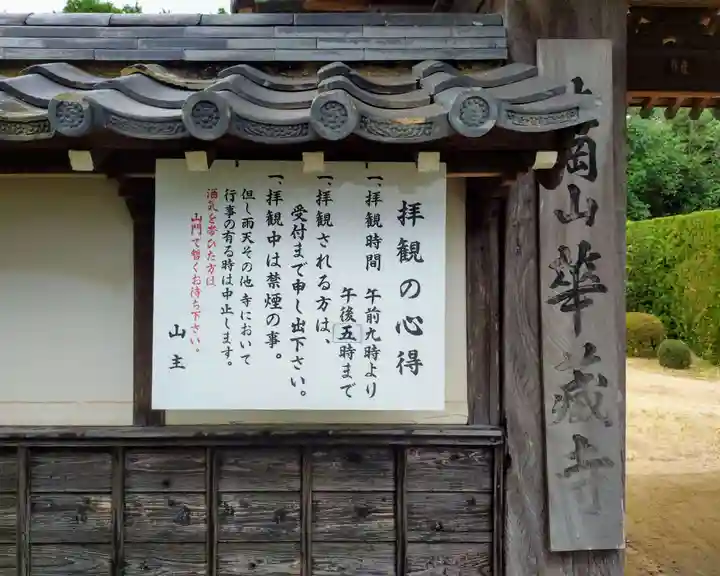 岡山華蔵寺
拝観の心得
一、拝観時間　午前九時より
午後五時まで
一、拝観される方は、
受付まで申し出下さい。
一、拝観中は禁煙の事。
但し雨天その他 寺において
行事の有る時は中止します。
酒気を帯びた方は
山門で暫くお待ち下さい。
山主